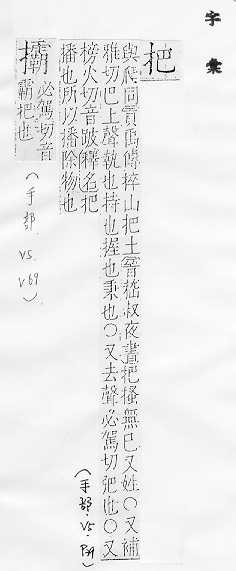 字彙
把
與爬同貢禹傳捽山把土晉嵇叔夜書把搔無已又姓〇又補
雅切巴上聲執也持也握也秉也〇又去聲必駕切弝也〇又
榜火切音跛釋名把
播也所以播除物也
(手部.V5.P39)
必駕切音
霸把也
(手部 V5 V69)